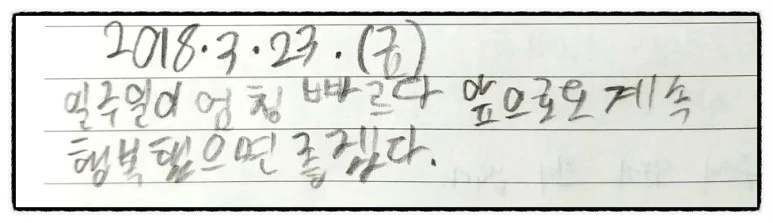 2018.3.23.(금)
일주일이 엄청 빠르다 앞으로오 계속
행복했으면 좋겠다.